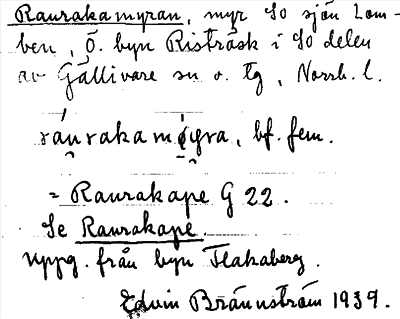 Raurakamyran, myr SO sjön Lom-
ben, Ö. byn Risträsk i SO delen
av Gällivare sn o. tg, Norrb. l.
ráu̯rakamýi̯ra, bf. fem.
= Raurakape G 22.
Se Raurakape.
Uppg. från byn Flakaberg.
Edvin Brännström 1939.